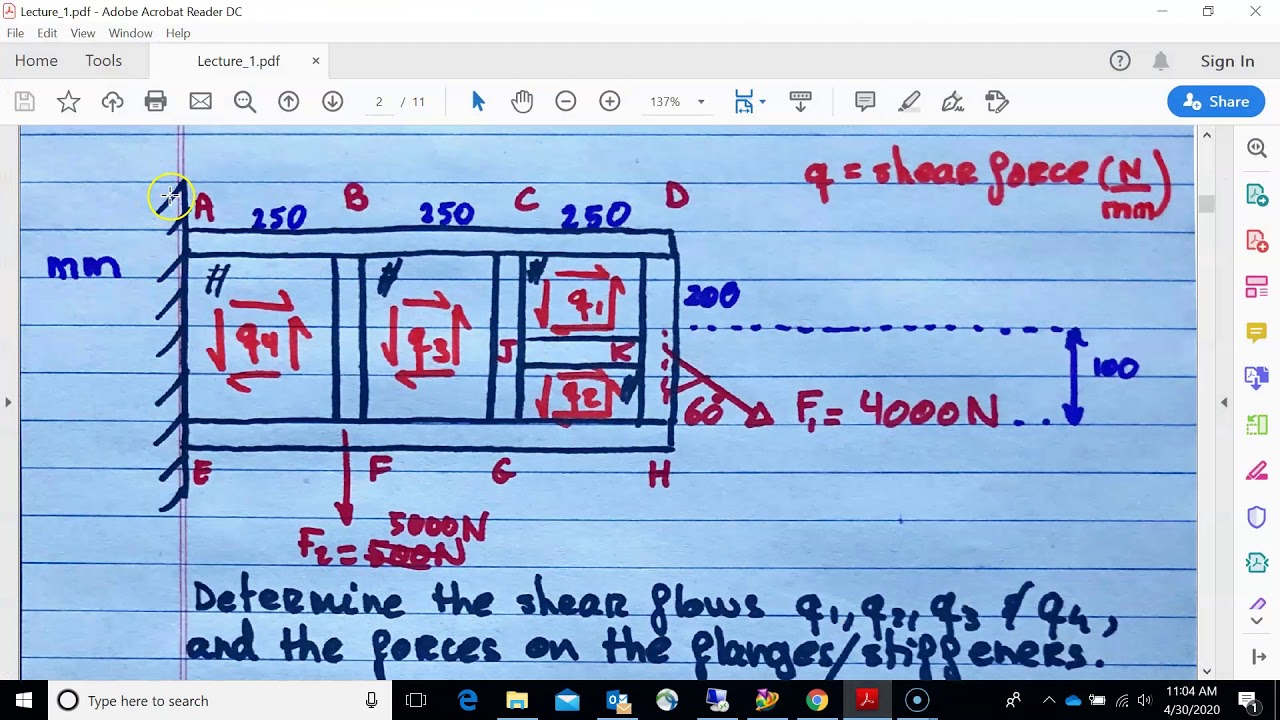 Lecture_1.pdf - Adobe Acrobat Reader DC
File Edit View Window Help
Home Tools Lecture_1.pdf × Sign In
2 / 11 137% Share
q = shear force (N/mm)
A B C D
250 250 250
mm
200
q4 q3 q1
J K
q2
100
60° F1 = 4000N
E F G H
5000N
F2 = 500N
Determine the shear flows q1, q2, q3 & q4,
and the forces on the flanges/stiffeners.
Type here to search
11:04 AM
4/30/2020
1